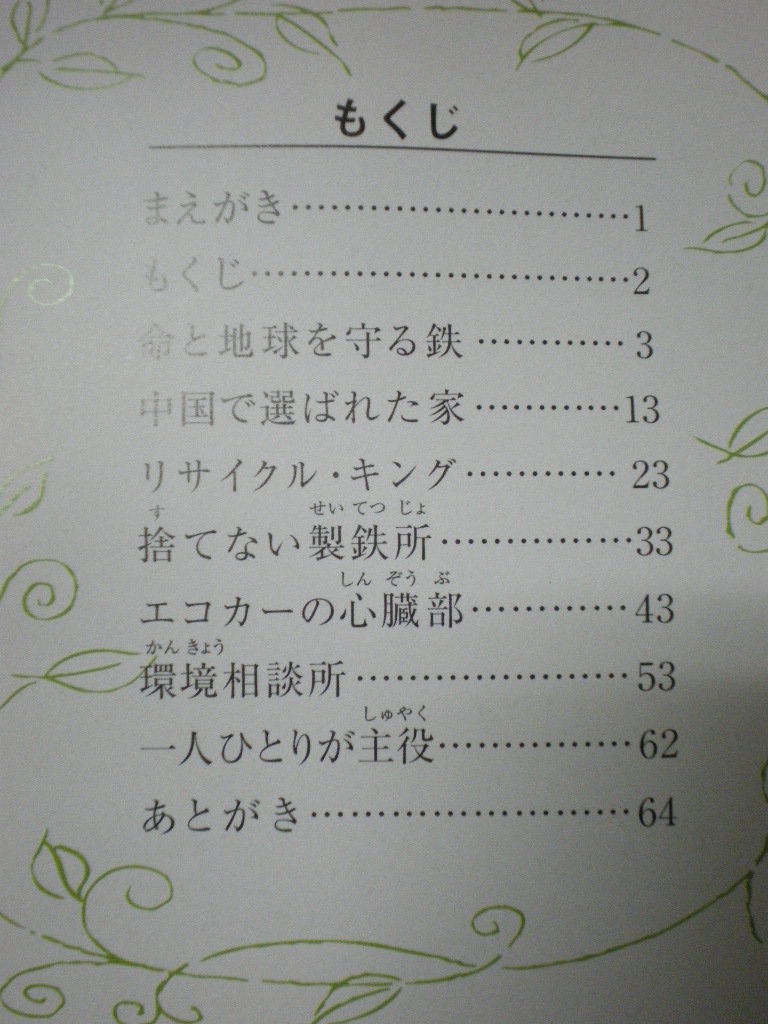 もくじ
まえがき…………………………1
もくじ……………………………2
命と地球を守る鉄…………3
中国で選ばれた家…………13
リサイクル・キング…………23
す せいてつじょ
捨てない製鉄所……………33
しんぞうぶ
エコカーの心臓部…………43
かんきょう
環境相談所…………………53
しゅやく
一人ひとりが主役……………62
あとがき………………………64